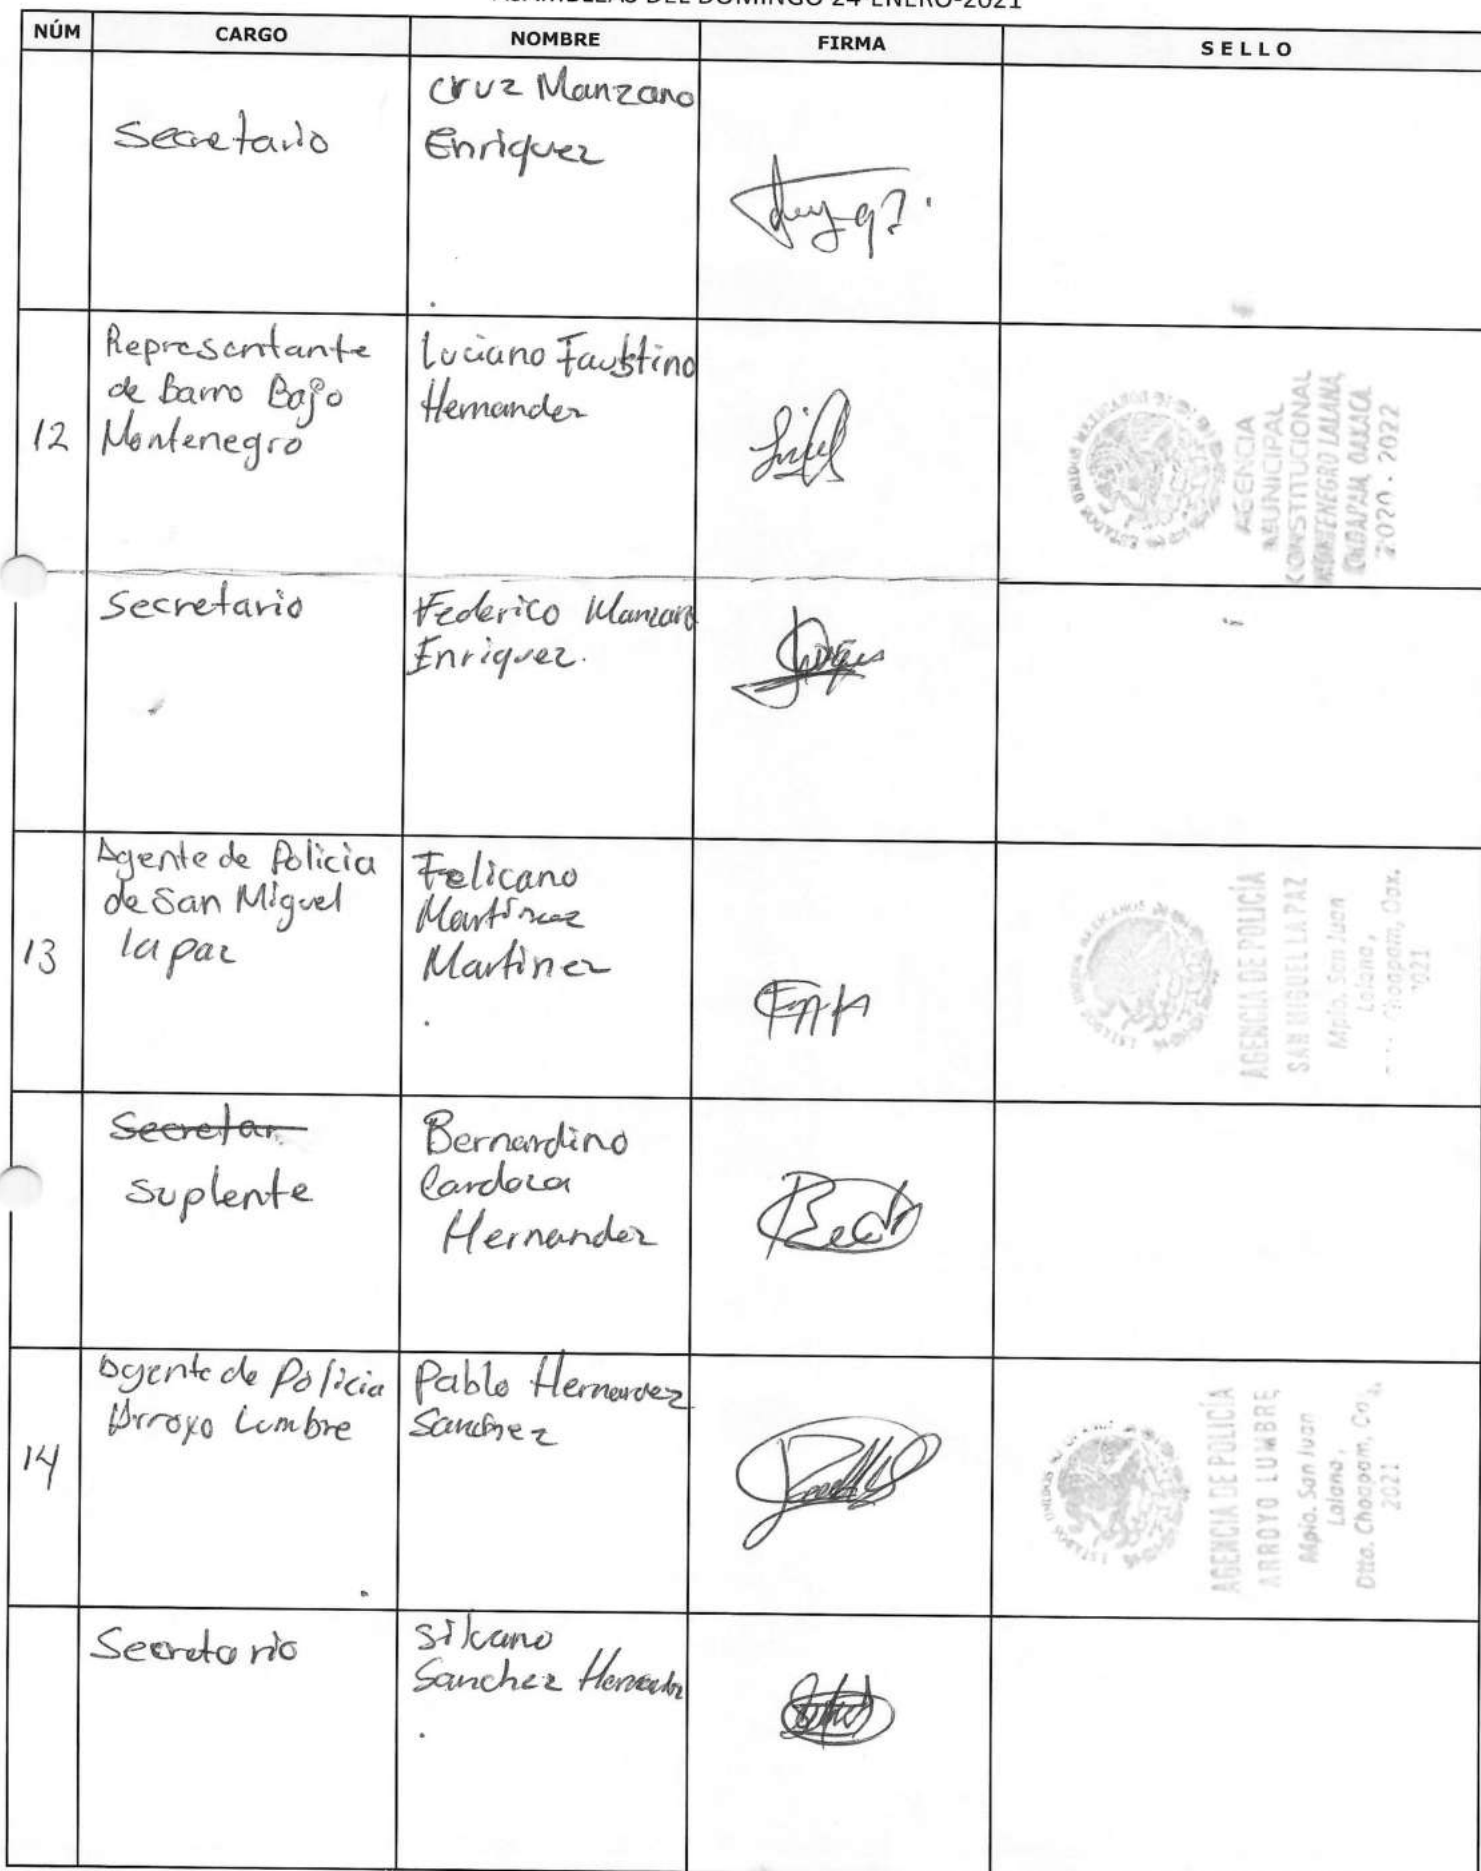 ASAMBLEAS DEL DOMINGO 24-ENERO-2021
NÚM CARGO NOMBRE FIRMA SELLO
Secretario
Cruz Manzano
Enriquez
12
Representante
de Barrio Bajo
Montenegro
Luciano Faustino
Hernandez
AGENCIA
MUNICIPAL
CONSTITUCIONAL
MONTENEGRO LALANA,
CHOAPAM, OAXACA
2020 - 2022
ESTADOS UNIDOS MEXICANOS
Secretario
Federico Manzano
Enriquez.
13
Agente de Policia
de San Miguel
la paz
Felicano
Martinez
Martinez
ESTADOS UNIDOS MEXICANOS
AGENCIA DE POLICÍA
SAN MIGUEL LA PAZ
Mpio. San Juan
Lalana,
Choapam, Oax.
2021
Secretar
Suplente
Bernardino
Cardoza
Hernandez
14
Agente de Policia
Arroyo Lumbre
Pablo Hernandez
Sanchez
ESTADOS UNIDOS
AGENCIA DE POLICÍA
ARROYO LUMBRE,
Mpio. San Juan
Lalana,
Dtto. Choapam,
2021
Secretario
Silvano
Sanchez Hernandez